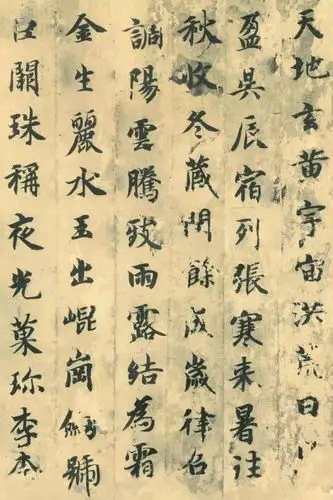 天地玄黄宇宙洪荒日
盈昃辰宿列張寒来暑往
秋收冬蔵閏餘成歲律召
調陽雲騰致雨露結為霜
金生麗水玉出崐崗號
巨闕珠稱夜光菓珎李柰